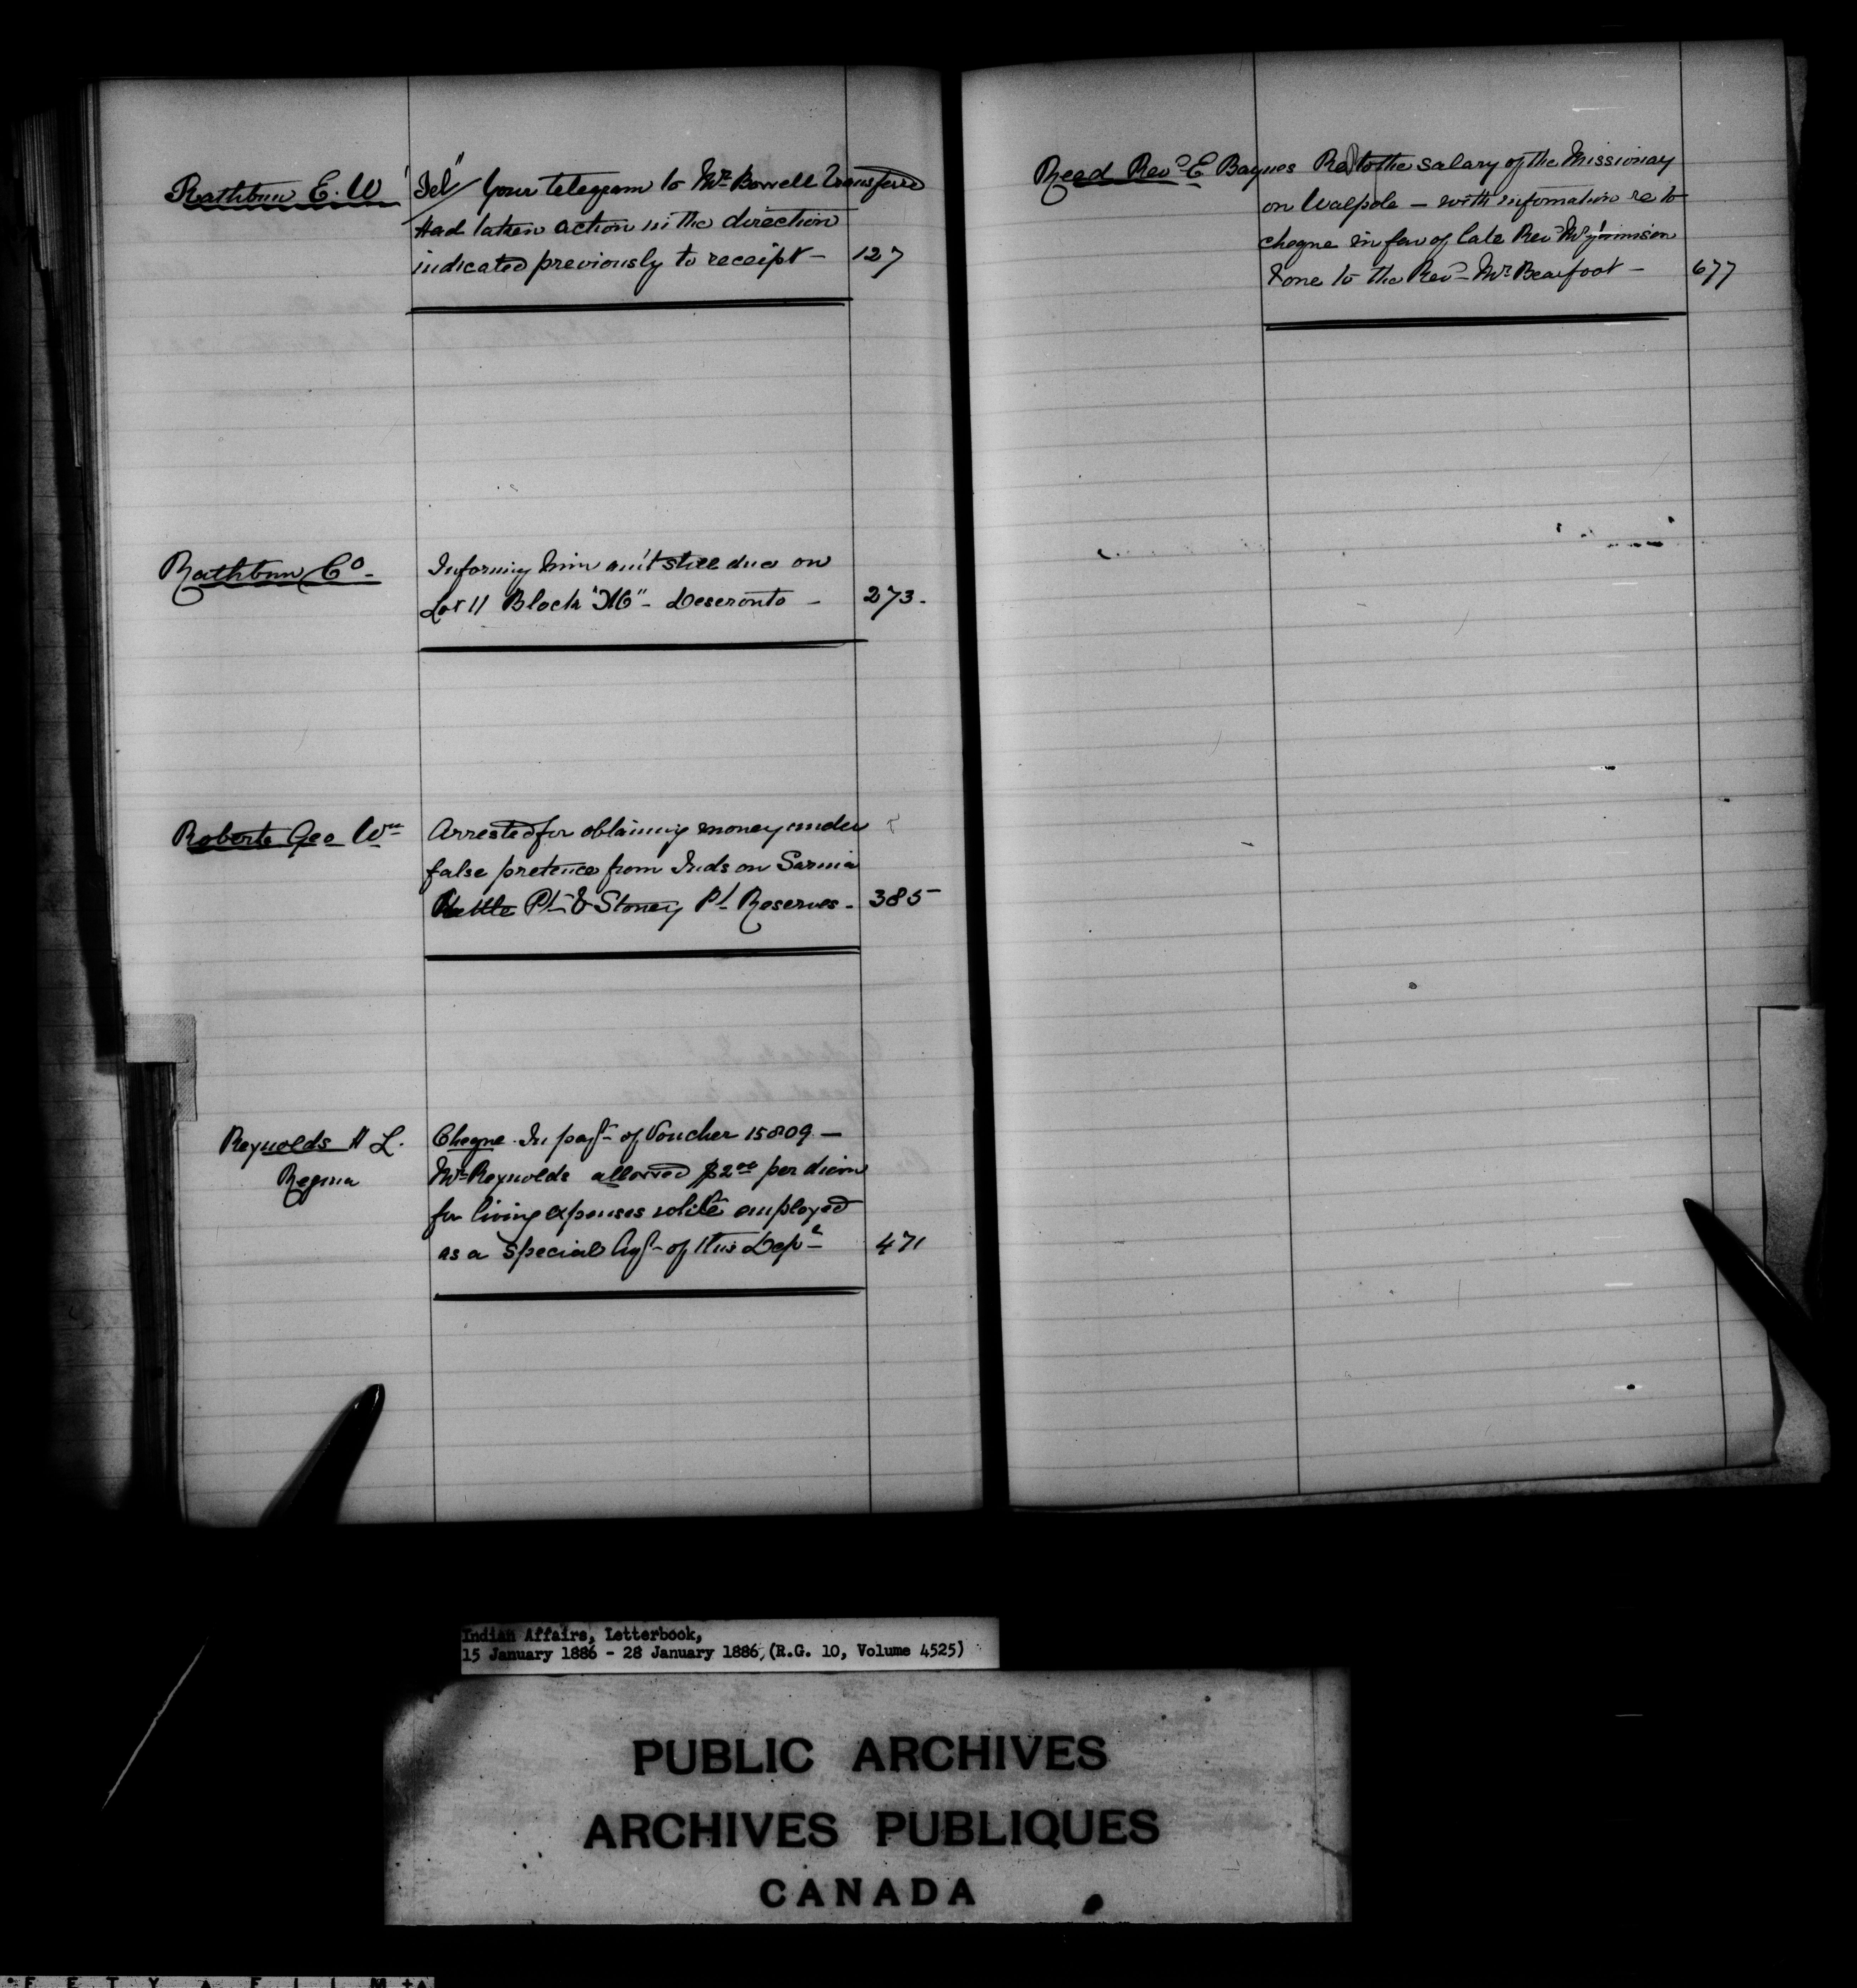 Rathbun E. W
"Tel" Your telegram to Mr. Bowell transferred
Had taken action in the direction
indicated previously to receipt — 127
Rathbun Co.
Informing him am't still due on
Lot 11 Block - Deseronto — 273.
Roberts Geo Wm
Arrested for obtaining money under
false pretence from Inds on Sarnia
Kettle Pt & Stoney Pt Reserves - 385
Reynolds H L.
Regina
Cheque In payt of Voucher 15809 —
Mr Reynolds allowed $2.00 per diem
for living expenses while employed
as a Special Agt of this Dept 471
Reed Revd E Baynes
Re to the salary of the Missionary
on Walpole — with information re to
cheque in fav of late Revd Mr Jamieson
& one to the Revd Mr Bearfoot — 677
Indian Affairs, Letterbook,
15 January 1886 - 28 January 1886, (R.G. 10, Volume 4525)
PUBLIC ARCHIVES
ARCHIVES PUBLIQUES
CANADA